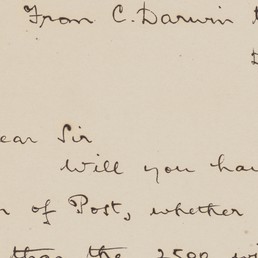 From C. Darwin
ear Sir
Will you hav
of Post, whether
than the 2500